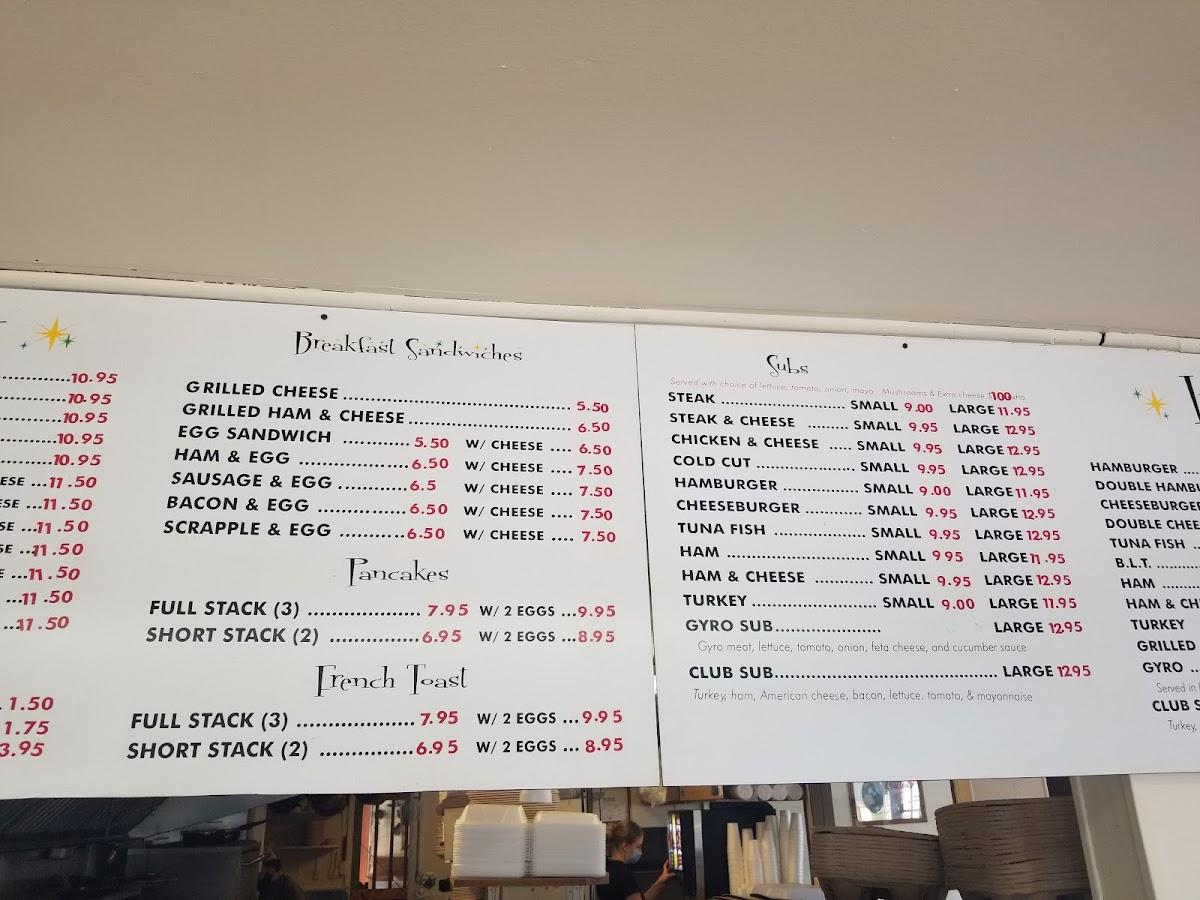 10.95
10.95
10.95
10.95
10.95
ESE ...11.50
ESE ...11.50
SE ...11.50
SE ...11.50
E ...11.50
...11.50
...11.50
1.50
1.75
3.95
Breakfast Sandwiches
GRILLED CHEESE 5.50
GRILLED HAM & CHEESE 6.50
EGG SANDWICH 5.50 W/ CHEESE .... 6.50
HAM & EGG 6.50 W/ CHEESE .... 7.50
SAUSAGE & EGG 6.5 W/ CHEESE .... 7.50
BACON & EGG 6.50 W/ CHEESE .... 7.50
SCRAPPLE & EGG 6.50 W/ CHEESE .... 7.50
Pancakes
FULL STACK (3) 7.95 W/ 2 EGGS ...9.95
SHORT STACK (2) 6.95 W/ 2 EGGS ...8.95
French Toast
FULL STACK (3) 7.95 W/ 2 EGGS ...9.95
SHORT STACK (2) 6.95 W/ 2 EGGS ... 8.95
Subs
Served with choice of lettuce, tomato, onion, mayo Mushrooms & Extra cheese $100
STEAK SMALL 9.00 LARGE 11.95
STEAK & CHEESE SMALL 9.95 LARGE 1295
CHICKEN & CHEESE ..... SMALL 9.95 LARGE 12.95
COLD CUT SMALL 9.95 LARGE 12.95
HAMBURGER SMALL 9.00 LARGE 11.95
CHEESEBURGER SMALL 9.95 LARGE 12.95
TUNA FISH SMALL 9.95 LARGE 12.95
HAM SMALL 995 LARGE 11.95
HAM & CHEESE SMALL 9.95 LARGE 12.95
TURKEY SMALL 9.00 LARGE 11.95
GYRO SUB LARGE 12.95
Gyro meat, lettuce, tomato, onion, feta cheese, and cucumber sauce
CLUB SUB LARGE 1295
Turkey, ham, American cheese, bacon, lettuce, tomato, & mayonnaise
HAMBURGER
DOUBLE HAMBU
CHEESEBURGER
DOUBLE CHEE
TUNA FISH
B.L.T.
HAM
HAM & CH
TURKEY
GRILLED
GYRO
Served in
CLUB S
Turkey,